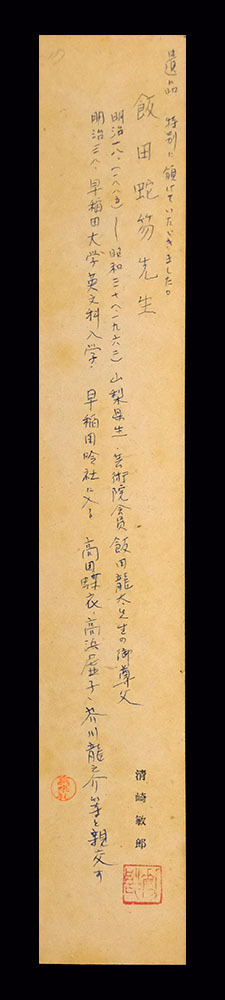 遺品 特別に頒けていただきました。
飯田蛇笏先生
明治一八(一八八五)―昭和三十七(一九六二)山梨県生・芸術院会員飯田龍太先生の御尊父
明治三八・早稲田大学英文科入学・早稲田吟社に入る 高田蝶衣・高浜虚子・芥川龍之介等と親交す
清崎敏郎